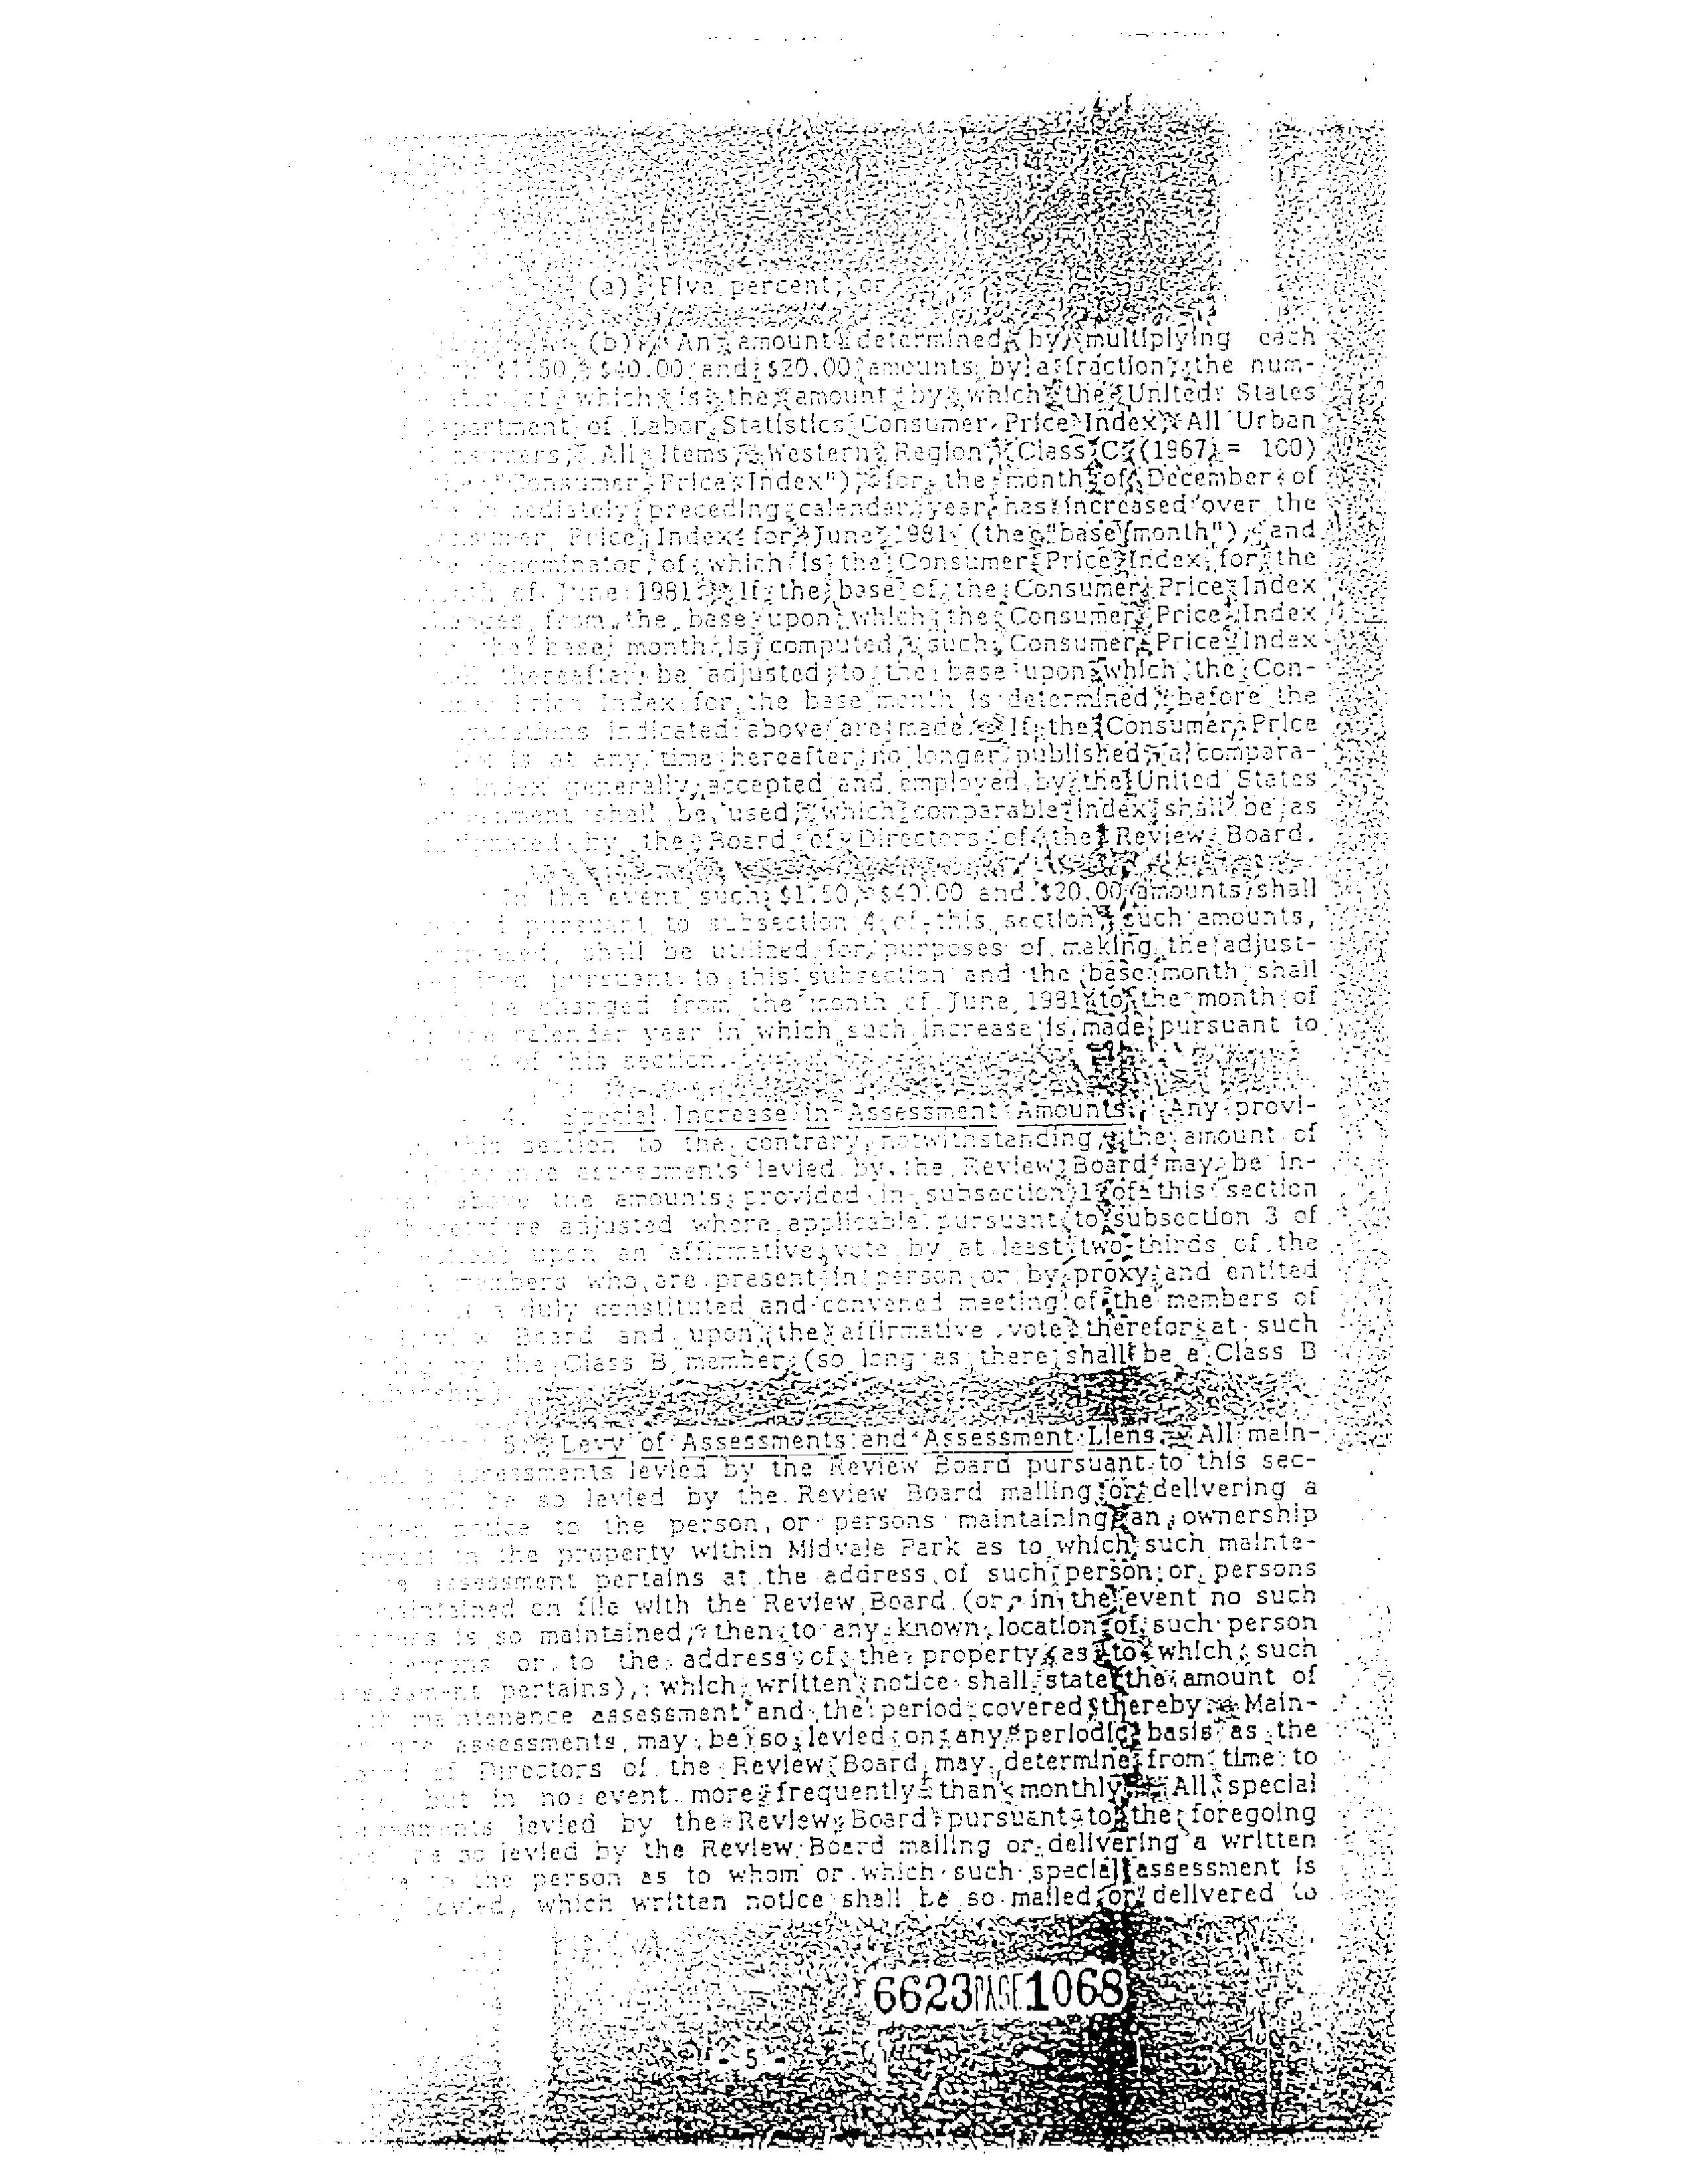 (a) Five percent; or
(b) An amount determined by multiplying each
$1.50, $40.00 and $20.00 amounts by a fraction, the num-
of which is the amount by which the United States
Department of Labor Statistics Consumer Price Index, All Urban
All Items, Western Region, Class C (1967 = 100)
"Consumer Price Index"), for the month of December of
preceding calendar year has increased over the
Price Index for June 1981 (the "base month"), and
denominator of which is the Consumer Price Index for the
of June 1981. If the base of the Consumer Price Index
from the base upon which the Consumer Price Index
the base month is computed, such Consumer Price Index
thereafter be adjusted to the base upon which the Con-
Price Index for the base month is determined before the
indicated above are made. If the Consumer Price
is at any time hereafter no longer published, a compara-
index generally accepted and employed by the United States
shall be used, which comparable index shall be as
by the Board of Directors of the Review Board.
In the event such $1.50, $40.00 and $20.00 amounts shall
pursuant to subsection 4 of this section, such amounts,
shall be utilized for purposes of making the adjust-
pursuant to this subsection and the base month shall
be changed from the month of June 1981 to the month of
calendar year in which such increase is made pursuant to
4 of this section.
4. Special Increase in Assessment Amounts. Any provi-
this section to the contrary notwithstanding, the amount of
assessments levied by the Review Board may be in-
above the amounts provided in subsection 1 of this section
adjusted where applicable pursuant to subsection 3 of
upon an affirmative vote by at least two-thirds of the
members who are present in person or by proxy and entited
a duly constituted and convened meeting of the members of
Board and upon the affirmative vote therefor at such
by the Class B member (so long as there shall be a Class B
5. Levy of Assessments and Assessment Liens. All main-
assessments levied by the Review Board pursuant to this sec-
be so levied by the Review Board mailing or delivering a
notice to the person or persons maintaining an ownership
in the property within Midvale Park as to which such mainte-
assessment pertains at the address of such person or persons
maintained on file with the Review Board (or, in the event no such
is so maintained, then to any known location of such person
or to the address of the property as to which such
pertains), which written notice shall state the amount of
maintenance assessment and the period covered thereby. Main-
assessments may be so levied on any periodic basis as the
of Directors of the Review Board may determine from time to
but in no event more frequently than monthly. All special
levied by the Review Board pursuant to the foregoing
be so levied by the Review Board mailing or delivering a written
to the person as to whom or which such special assessment is
levied, which written notice shall be so mailed or delivered to
6623 PAGE 1068
- 5 -